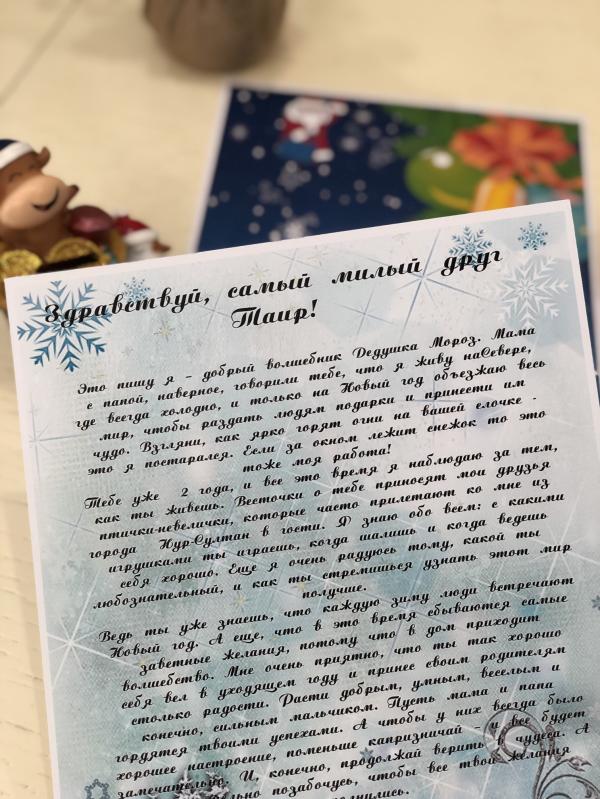 Здравствуй, самый милый друг
Таир!
Это пишу я - добрый волшебник Дедушка Мороз. Мама
с папой, наверное, говорили тебе, что я живу наСевере,
где всегда холодно, и только на Новый год объезжаю весь
мир, чтобы раздать людям подарки и принести им
чудо. Взгляни, как ярко горят огни на вашей елочке -
это я постарался. Если за окном лежит снежок то это
тоже моя работа!
Тебе уже 2 года, и все это время я наблюдаю за тем,
как ты живешь. Весточки о тебе приносят мои друзья
птички-невелички, которые часто прилетают ко мне из
города Нур-Султан в гости. Я знаю обо всем: с какими
игрушками ты играешь, когда шалишь и когда ведешь
себя хорошо. Еще я очень радуюсь тому, какой ты
любознательный, и как ты стремишься узнать этот мир
получше.
Ведь ты уже знаешь, что каждую зиму люди встречают
Новый год. А еще, что в это время сбываются самые
заветные желания, потому что в дом приходит
волшебство. Мне очень приятно, что ты так хорошо
себя вел в уходящем году и принес своим родителям
столько радости. Расти добрым, умным, веселым и
конечно, сильным мальчиком. Пусть мама и папа
гордятся твоими успехами. А чтобы у них всегда было
хорошее настроение, поменьше капризничай и все будет
замечательно. И, конечно, продолжай верить в чудеса. А
позабочусь, чтобы все твои желания